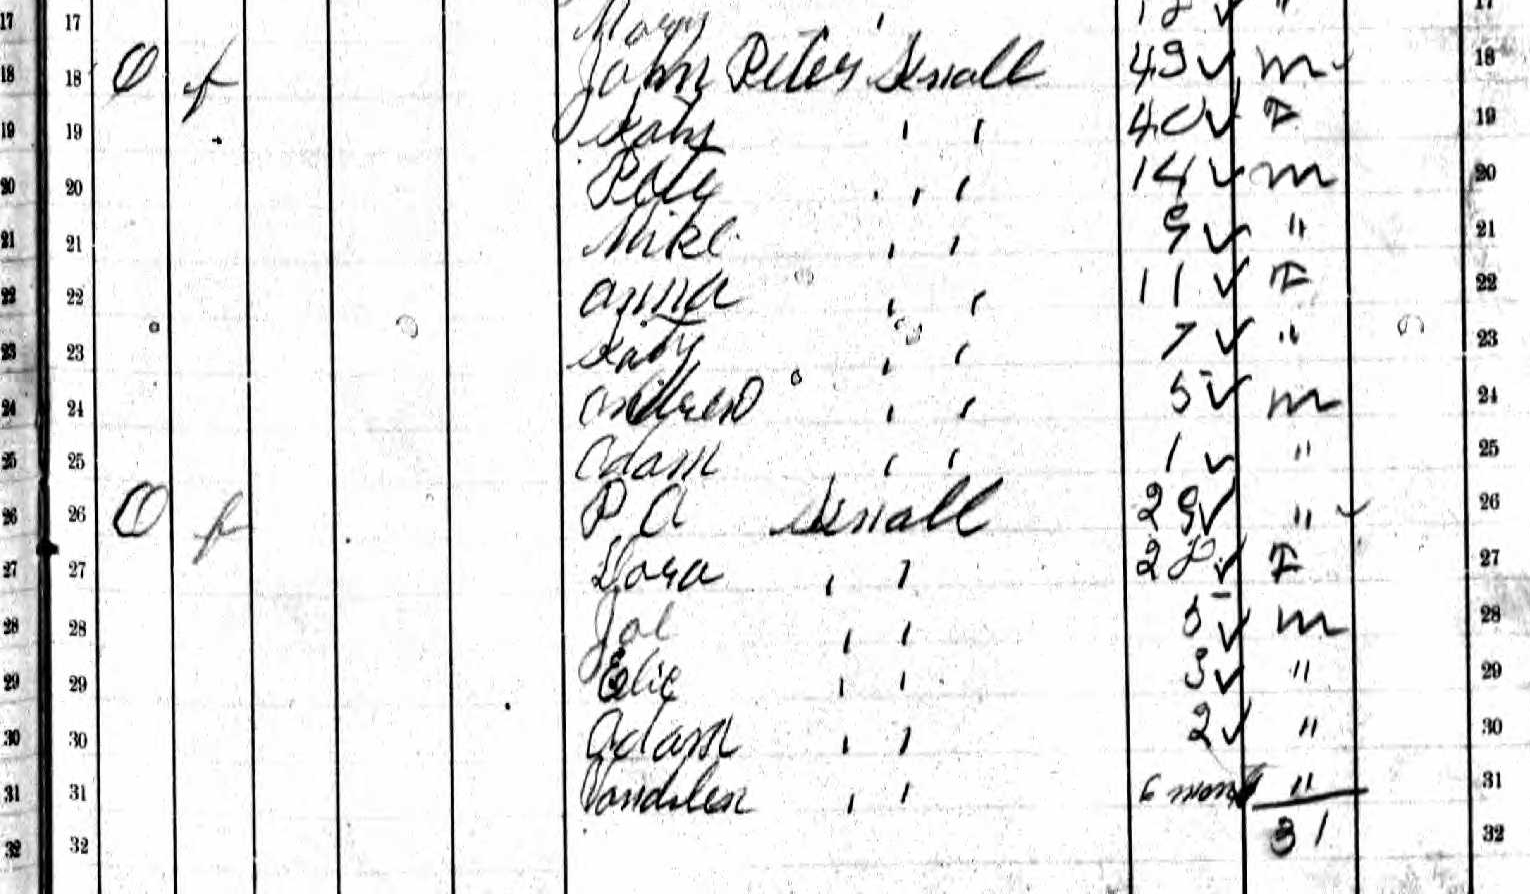 17 17 Mary ' 12 ✓ " 17
18 18 O f John Peter Senall 49 ✓ m ✓ 18
19 19 Katy ' ' 40 ✓ F 19
20 20 Pete ' ' 14 ✓ m 20
21 21 Mike ' ' 9 ✓ " 21
22 22 Anna ' ' 11 ✓ F 22
23 23 Katy ' ' 7 ✓ " 23
24 24 Andrew ' ' 5 ✓ m 24
25 25 Adam ' ' 1 ✓ " 25
26 26 O f P A Senall 29 ✓ " ✓ 26
27 27 Dora ' ' 28 ✓ F 27
28 28 Joe ' ' 5 ✓ m 28
29 29 Elie ' ' 3 ✓ " 29
30 30 Adam ' ' 2 ✓ " 30
31 31 ' ' 6 mont " 31
32 32 31 32